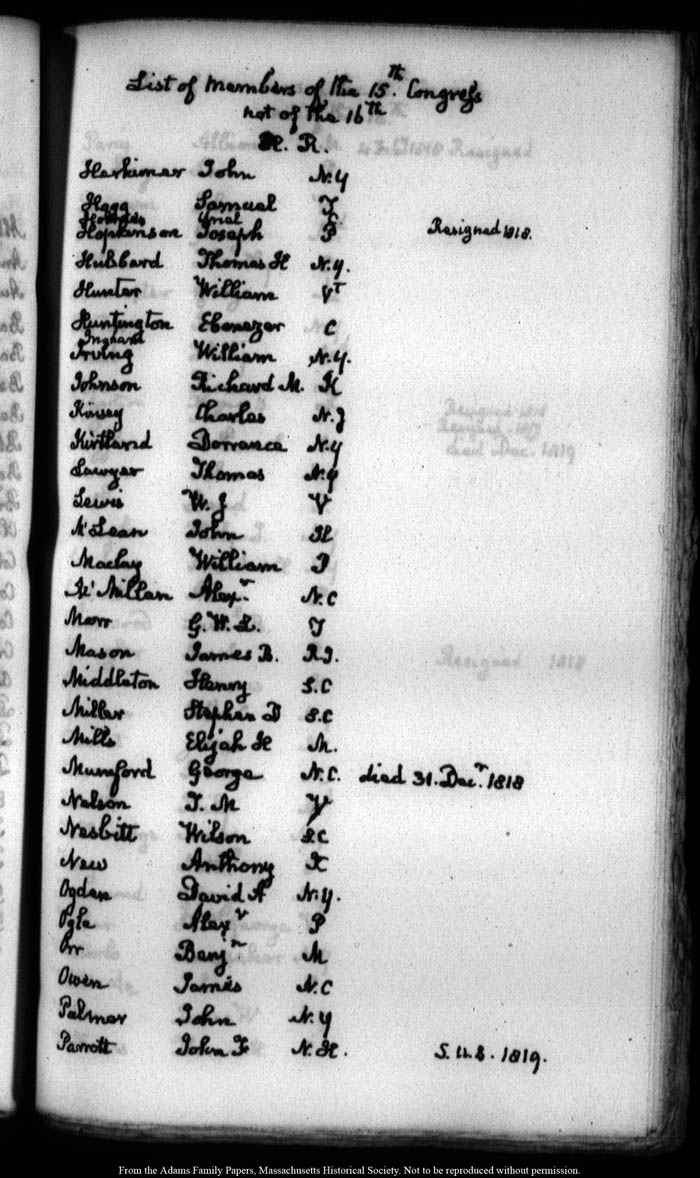 List of Members of the 15.th Congress
not of the 16th
H. R.
Herkimer John N.Y
Hogg Samuel T
Holmes Uriel C
Hopkinson Joseph P Resigned 1818.
Hubbard Thomas H N.Y.
Hunter William VT
Huntington Ebenezer C
Ingham
Irving William N.Y.
Johnson Richard M. K
Kinsey Charles N.J
Kirtland Dorrance N.Y
Lawyer Thomas N.Y
Lewis W. J V
McLean John Il
Maclay William P
McMillan Alexr N.C
Marr G. W. L. T
Mason James B. R.I.
Middleton Henry S.C
Miller Stephen D S.C
Mills Elijah H M.
Mumford George N.C. died 31. Decr. 1818
Nelson T. M V
Nesbitt Wilson S.C
New Anthony K
Ogden David A N.Y.
Ogle Alexr P
Orr Benjn M
Owen James N.C
Palmer John N.Y
Parrott John F N.H. S.U.S. 1819.
From the Adams Family Papers, Massachusetts Historical Society. Not to be reproduced without permission.